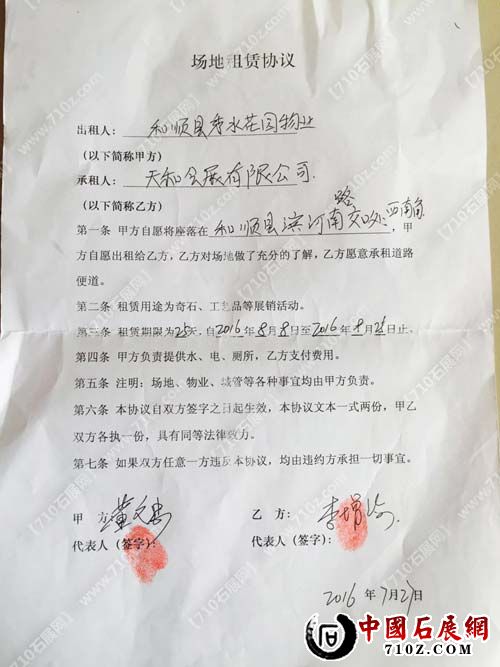 场地租赁协议
出租人：和顺县秀水花园物业
（以下简称甲方）
承租人：天和会展有限公司.
（以下简称乙方）
第一条 甲方自愿将座落在 和顺县滨河南路交口处西南角，甲
方自愿出租给乙方，乙方对场地做了充分的了解，乙方愿意承租道路
便道。
第二条 租赁用途为奇石、工艺品等展销活动。
第三条 租赁期限为25天，自2016年8月8日至2016年8月26日止。
第四条 甲方负责提供水、电、厕所，乙方支付费用。
第五条 注明；场地、物业、城管等各种事宜均由甲方负责。
第六条 本协议自双方签字之日起生效，本协议文本一式两份，甲乙
双方各执一份，具有同等法律效力。
第七条 如果双方任意一方违反本协议，均由违约方承担一切事宜。
甲 方：董文
乙 方：李增
代表人（签字）：
代表人（签字）：
2016 年 7月27日
中國石展網
710Z.COM